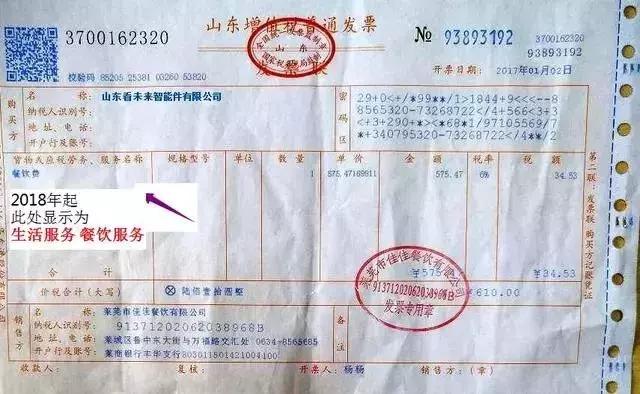 3700162320
山东增值税普通发票
№ 93893192
93893192
校验码 85205 25381 03260 53820
开票日期: 2017年01月02日
购买方
名称: 山东看未来智能件有限公司
纳税人识别号:
地址、电话:
开户行及账号:
密码区
29+0<+/*99**/1>1844+9<<--8
8565320-73268722/+566<3+3
<+3+290+*><*68*1/97105569/7
*+340795320-73268722/+**/2
货物或应税劳务、服务名称 规格型号 单位 数量 单价 金额 税率 税额
餐饮费 1 575.47169811 575.47 6% 34.53
2018年起
此处显示为
生活服务 餐饮服务
合计 ¥575 ¥34.53
价税合计(大写) ⊗ 陆佰壹拾圆整 ¥610.00
销售方
名称: 莱芜市佳佳餐饮有限公司
纳税人识别号: 91371202062038968B
地址、电话: 莱城区鲁中东大街与万福路交汇处 0634-8565685
开户行及账号: 莱商银行丰华支行803011501421004100
备注
莱芜市佳佳餐饮有限公司
91371202062038968B
发票专用章
收款人: 复核: 开票人: 杨杨 销售方:(章)
第二联:发票联 购买方记账凭证